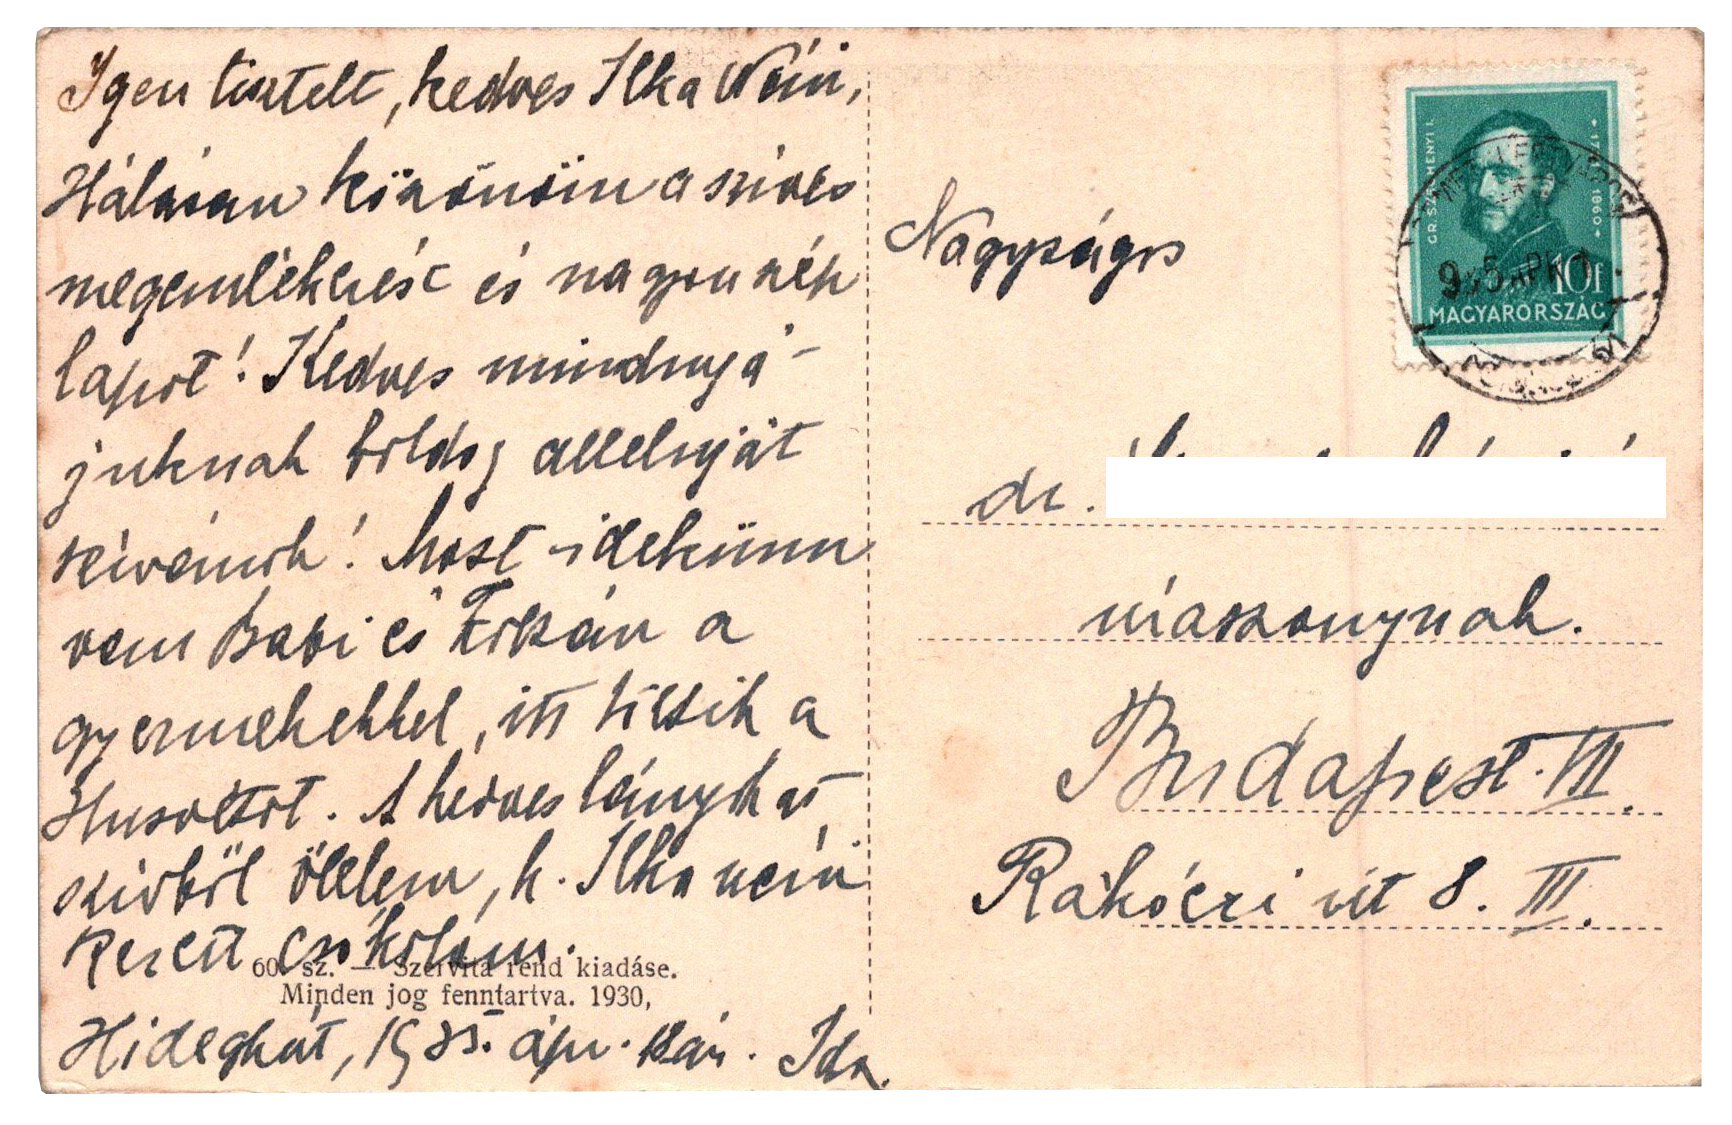 Igen tisztelt, kedves Ilka Néni,
Hálásan köszönöm a szíves
megemlékezést és nagyon szép
lapot! Kedves mindnyá-
juknak boldog alleluját
kívánok! Most idekünn
vem Babi és Zoltán a
gyermekekkel, itt töltik a
Husvétot. A kedves lánykát
szivből ölelem, k. Ilka néni
kezeit csókolom.
60. sz. — Szervita rend kiadáse.
Minden jog fenntartva. 1930,
Hideghút, 1935. ápr. Ida.
GR. SZÉCHENYI I.
1791 1860
10f
MAGYARORSZÁG
Nagyságos
dr.
úrasszonynak.
Budapest VII.
Rákóczi út 8. III.